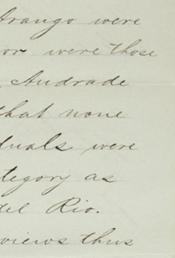 Arango were
or were those
Andrade
that none
duals were
tegory as
del Rio.
views thus